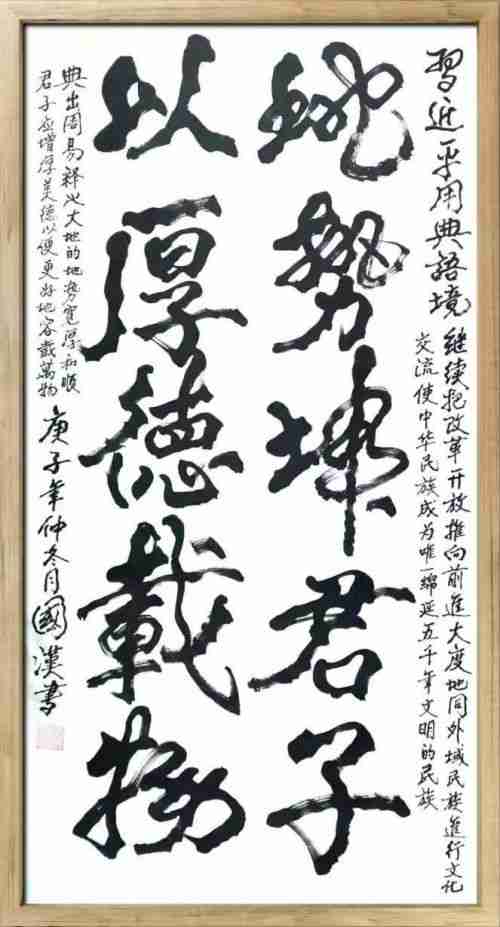 习近平用典语境
继续把改革开放推向前進大度地同外域民族進行文化
交流使中华民族成为唯一绵延五千年文明的民族
地势坤君子
以厚德載物
典出周易释为大地的地势宽厚和顺
君子应增厚美德以便更好地容載萬物
庚子年仲冬月國漢書